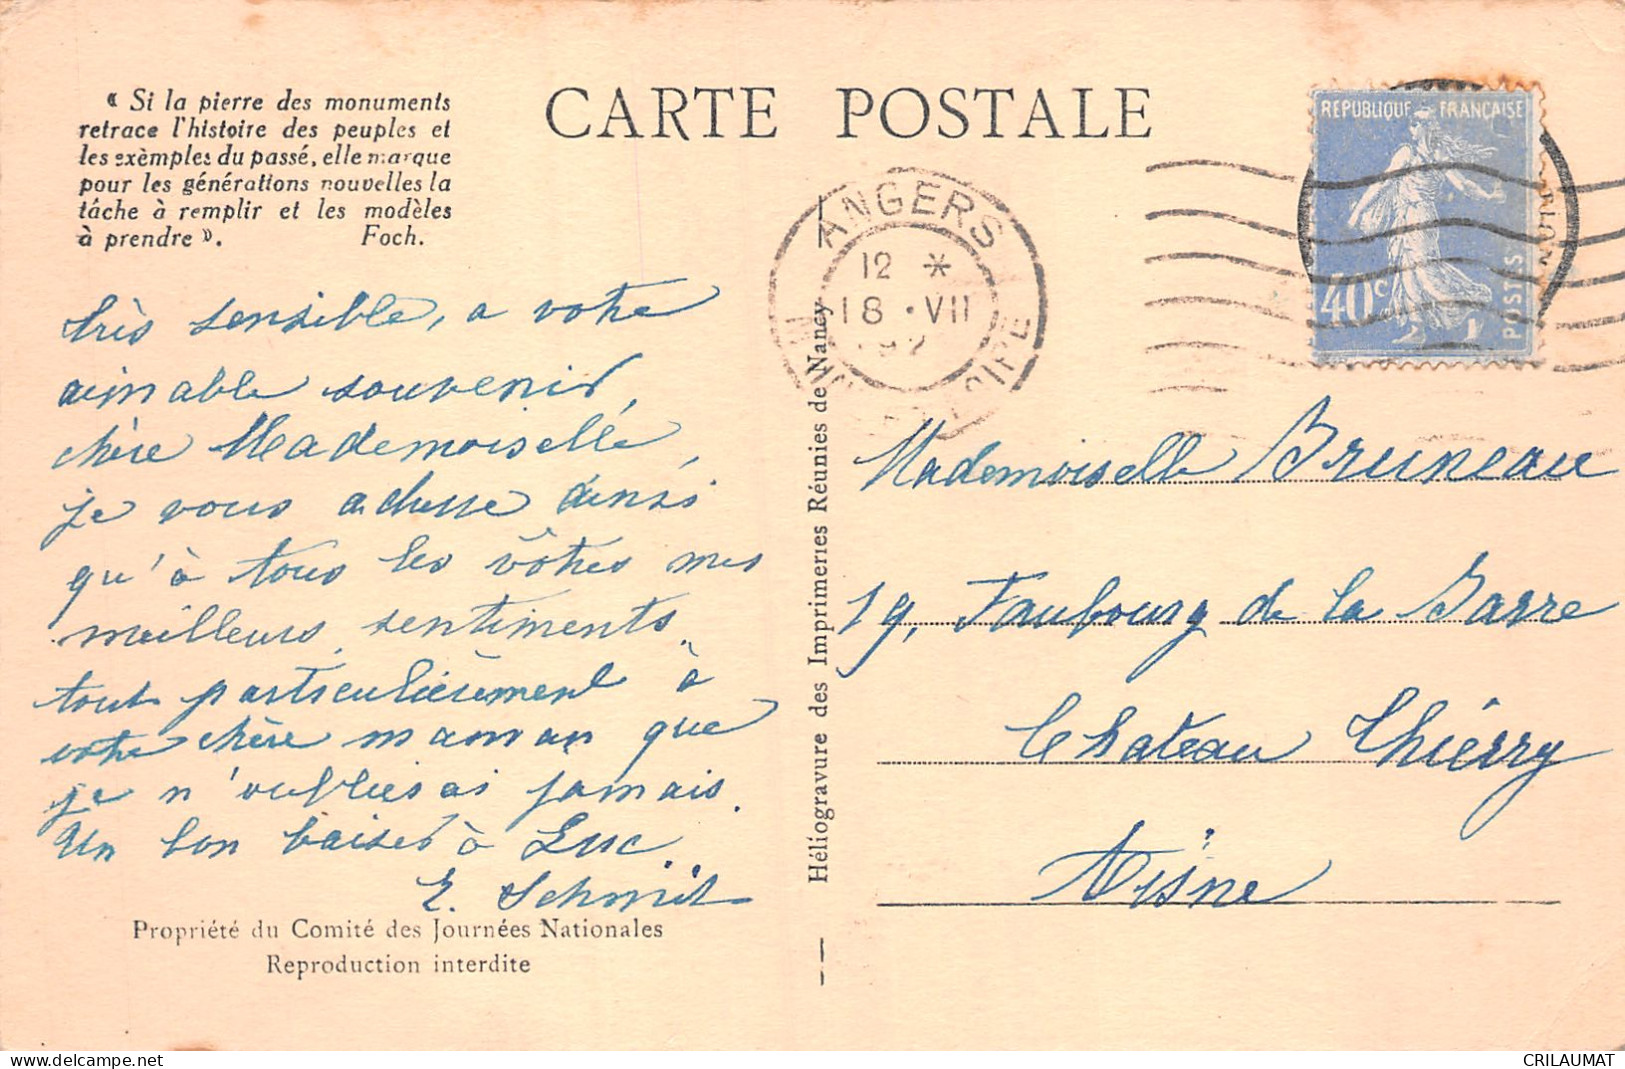 « Si la pierre des monuments
retrace l'histoire des peuples et
les exèmples du passé, elle marque
pour les générations nouvelles la
tâche à remplir et les modèles
à prendre ». Foch.
CARTE POSTALE
REPUBLIQUE FRANÇAISE
40c
POSTES
ANGERS
12 *
18 • VII
très sensible, a votre
aimable souvenir,
chère Mademoiselle,
je vous adresse ainsi
qu'à tous les vôtres mes
meilleurs sentiments
tout particulièrement à
votre chère maman que
je n'oublierai jamais.
Un bon baiser à Luc.
E. Schmit
Propriété du Comité des Journées Nationales
Reproduction interdite
Héliogravure des Imprimeries Réunies de Nancy
Mademoiselle Bruneau
19, Faubourg de la Barre
Chateau Thiérry
Aisne
delcampe.net
CRILAUMAT